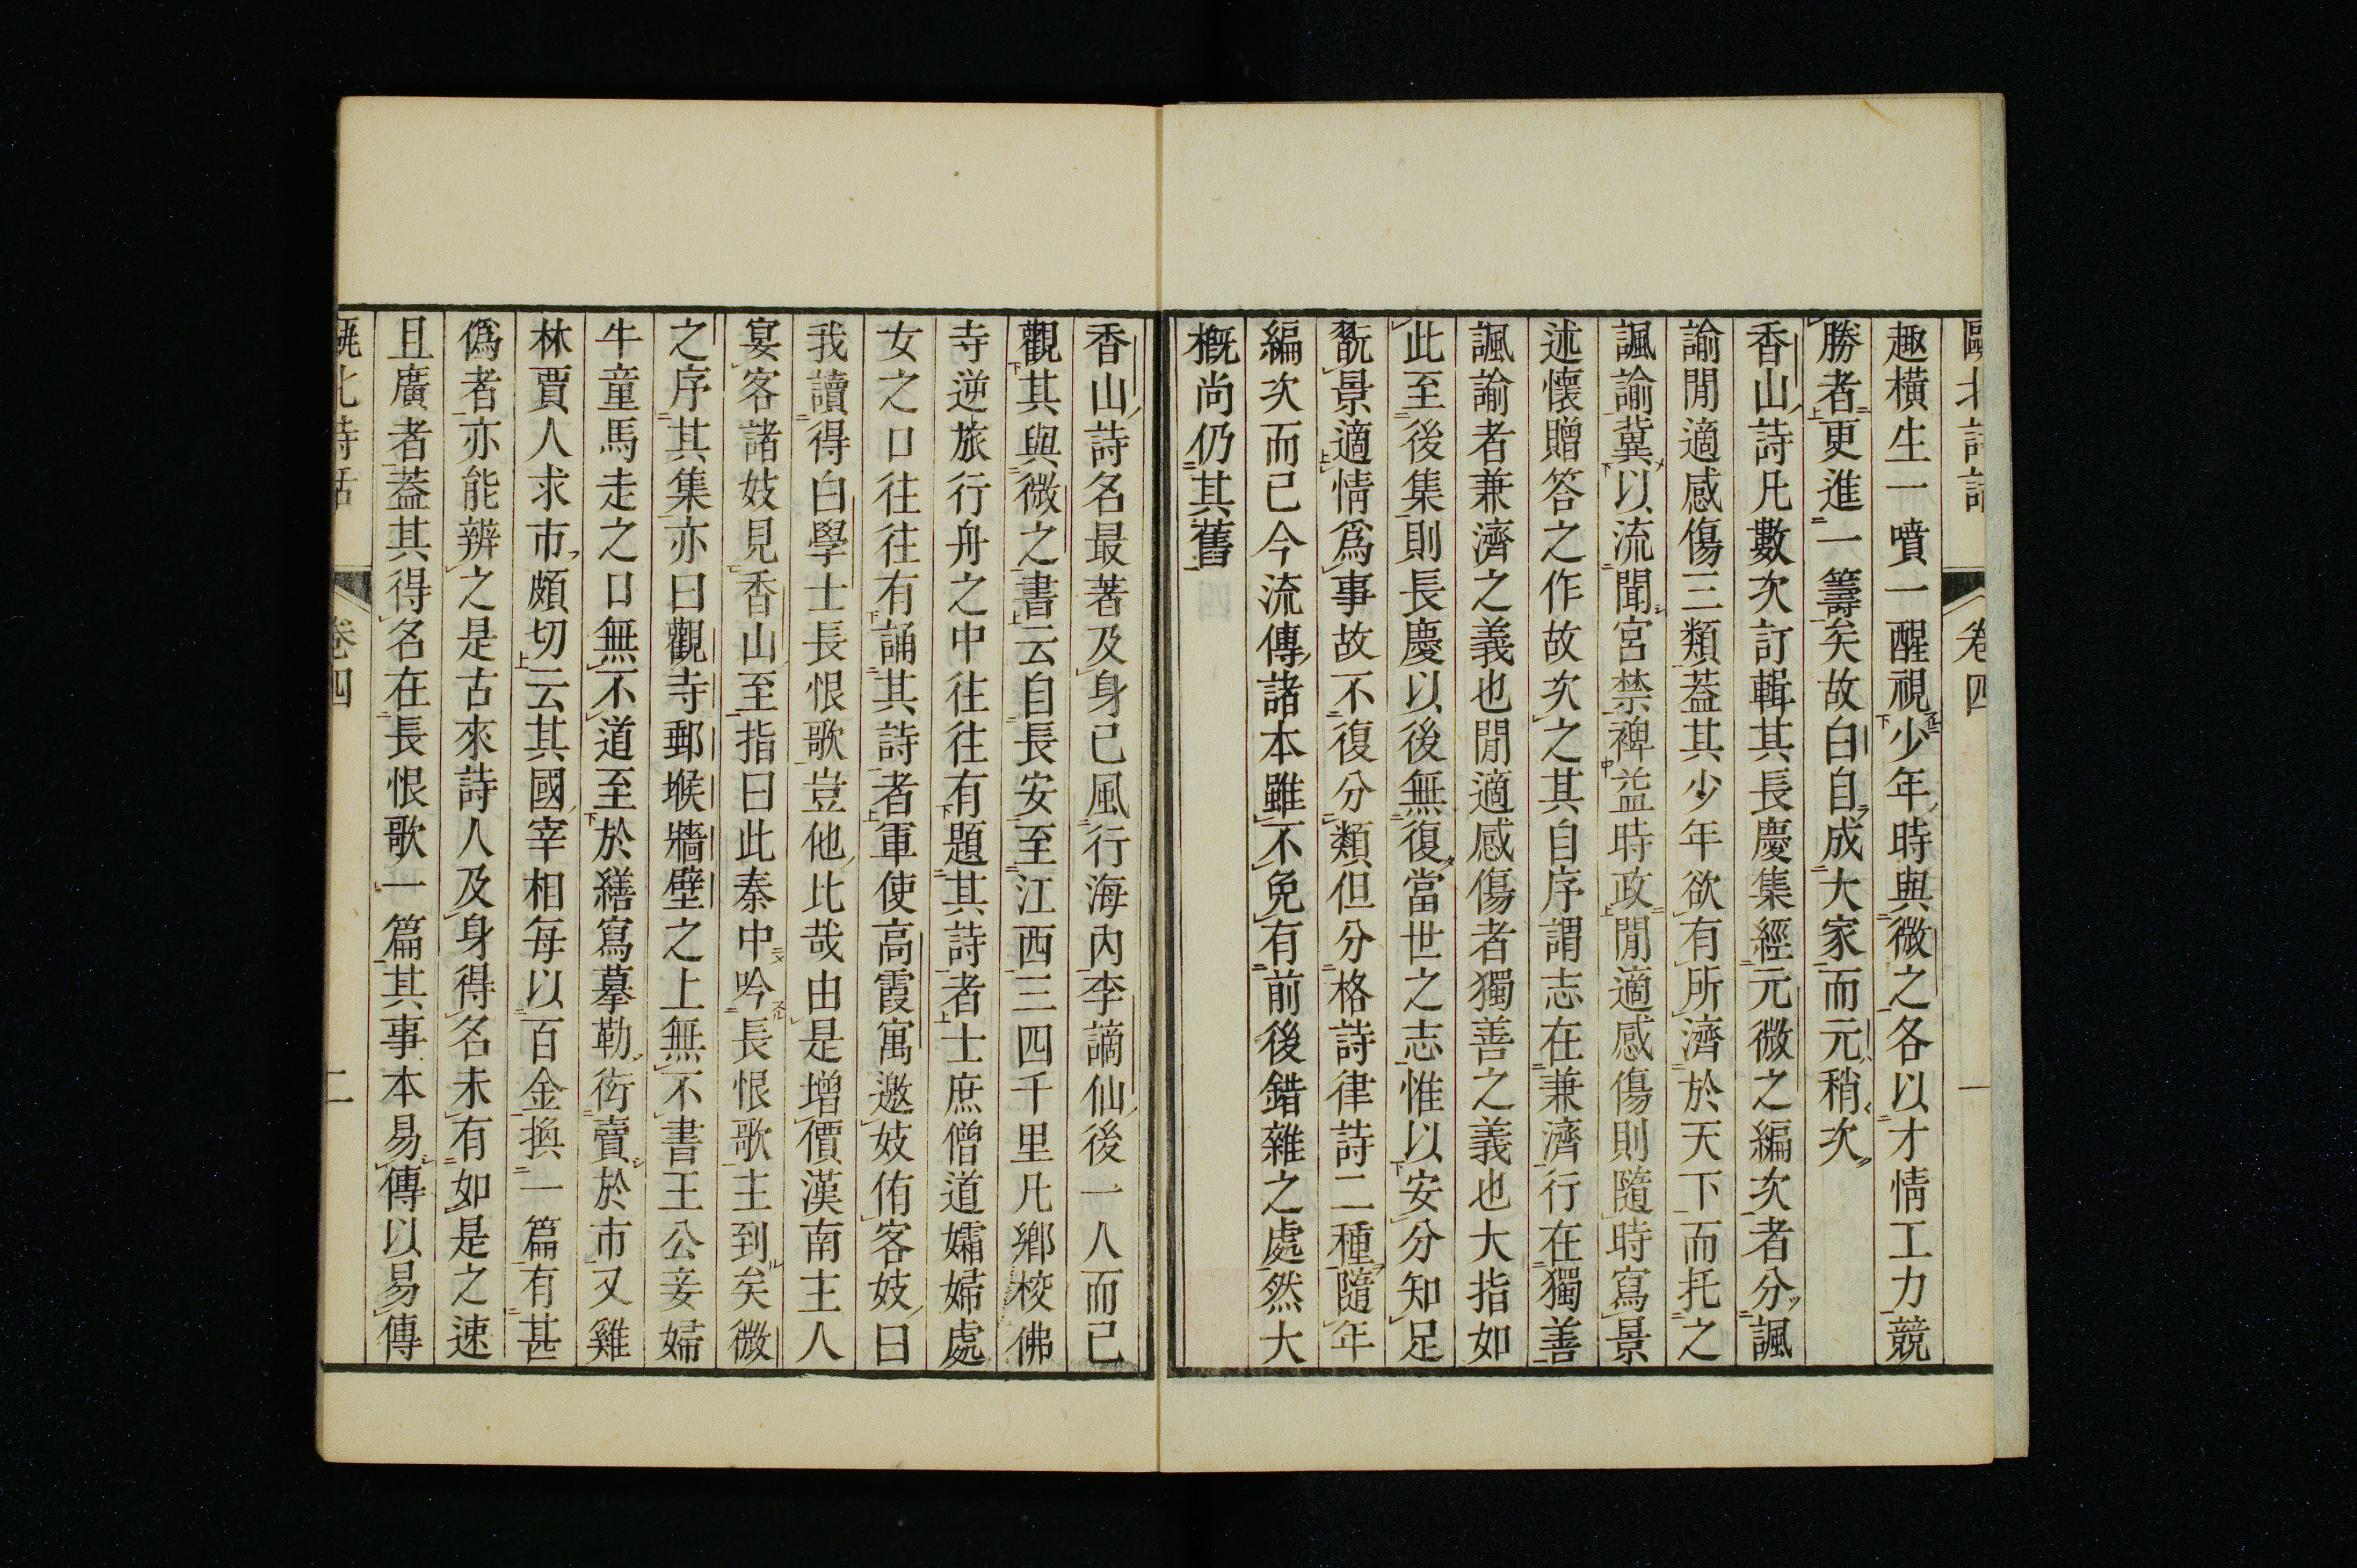 甌北詩話 卷四 一
趣橫生一噴一醒視少年時與微之各以才情工力競
勝者更進一籌矣故白自成大家而元稍次
香山詩凡數次訂輯其長慶集經元微之編次者分諷
諭閒適感傷三類葢其少年欲有所濟於天下而托之
諷諭冀以流聞宮禁裨益時政閒適感傷則隨時寫景
述懷贈答之作故次之其自序謂志在兼濟行在獨善
諷諭者兼濟之義也閒適感傷者獨善之義也大指如
此至後集則長慶以後無復當世之志惟以安分知足
翫景適情爲事故不復分類但分格詩律詩二種隨年
編次而已今流傳諸本雖不免有前後錯雜之處然大
槪尚仍其舊
香山詩名最著及身已風行海內李謫仙後一人而已
觀其與微之書云自長安至江西三四千里凡鄉校佛
寺逆旅行舟之中往往有題其詩者士庶僧道孀婦處
女之口往往有誦其詩者軍使高霞寓邀妓侑客妓曰
我讀得白學士長恨歌豈他比哉由是增價漢南主人
宴客諸妓見香山至指曰此秦中吟長恨歌主到矣微
之序其集亦曰觀寺郵堠牆壁之上無不書王公妾婦
牛童馬走之口無不道至於繕寫摹勒衒賣於市又雞
林賈人求市頗切云其國宰相每以百金換一篇有甚
僞者亦能辨之是古來詩人及身得名未有如是之速
且廣者葢其得名在長恨歌一篇其事本易傳以易傳
甌北詩話 卷四 二